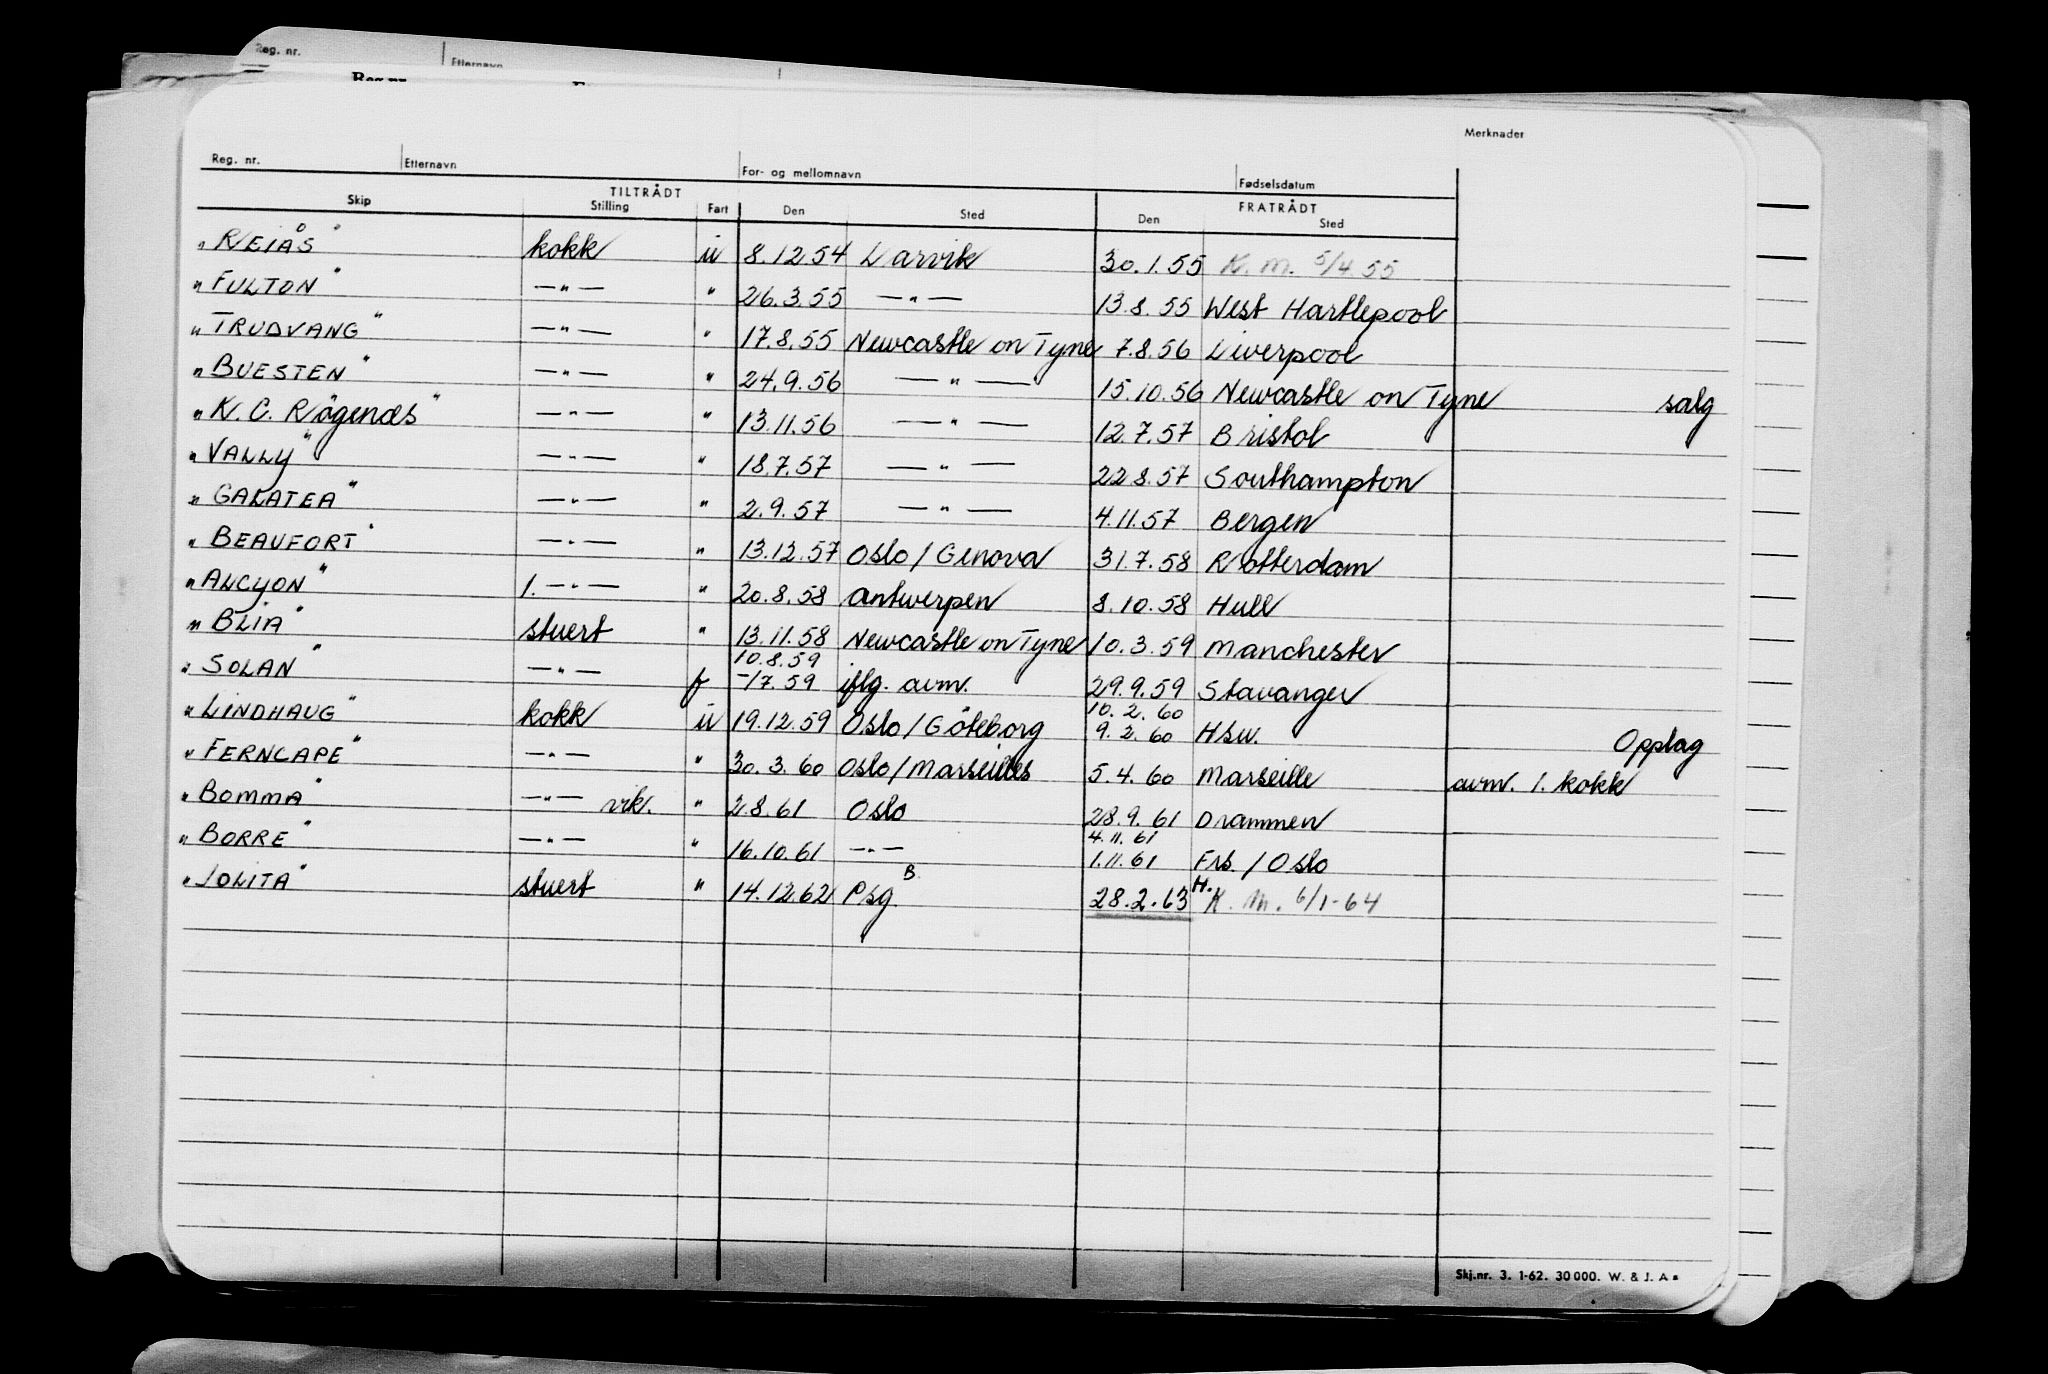 Reg. nr. Etternavn
Reg. nr.
Merknader
Reg. nr. Etternavn For- og mellomnavn Fødselsdatum
TILTRÅDT FRATRÅDT
Skip Stilling Fart Den Sted Den Sted
"REIÅS" kokk u 8.12.54 Larvik 30.1.55 K.M. 5/4 55
"FULTON" —"— " 26.3.55 —"— 13.8.55 West Hartlepool
"TRUDVANG" —"— " 17.8.55 Newcastle on Tyne 7.8.56 Liverpool
"BUESTEN" —"— " 24.9.56 —"— 15.10.56 Newcastle on Tyne salg
"K. C. Røgenæs" —"— " 13.11.56 —"— 12.7.57 Bristol
"VALLY" —"— " 18.7.57 —"— 22.8.57 Southampton
"GALATEA" —"— " 2.9.57 —"— 4.11.57 Bergen
"BEAUFORT" —"— " 13.12.57 Oslo/Genova 31.7.58 Rotterdam
"ALCYON" 1. —"— " 20.8.58 Antwerpen 8.10.58 Hull
"BLIA" stuert " 13.11.58 Newcastle on Tyne 10.3.59 Manchester
10.8.59
"SOLAN" —"— f -17.59 iflg. avm. 29.9.59 Stavanger
10.2.60
"LINDHAUG" kokk u 19.12.59 Oslo/Göteborg 9.2.60 Hsw. Opplag
"FERNCAPE" —"— " 30.3.60 Oslo/Marseilles 5.4.60 Marseille avm. 1. kokk
"BOMMA" —"— vik. " 2.8.61 Oslo 28.9.61 Drammen
4.11.61
"BORRE" —"— " 16.10.61 —"— 1.11.61 Frs./Oslo
"LOLITA" stuert " 14.12.62 Psg. B. 28.2.63 H. K.M. 6/1-64
Skj.nr. 3. 1-62. 30 000. W. & J. A s